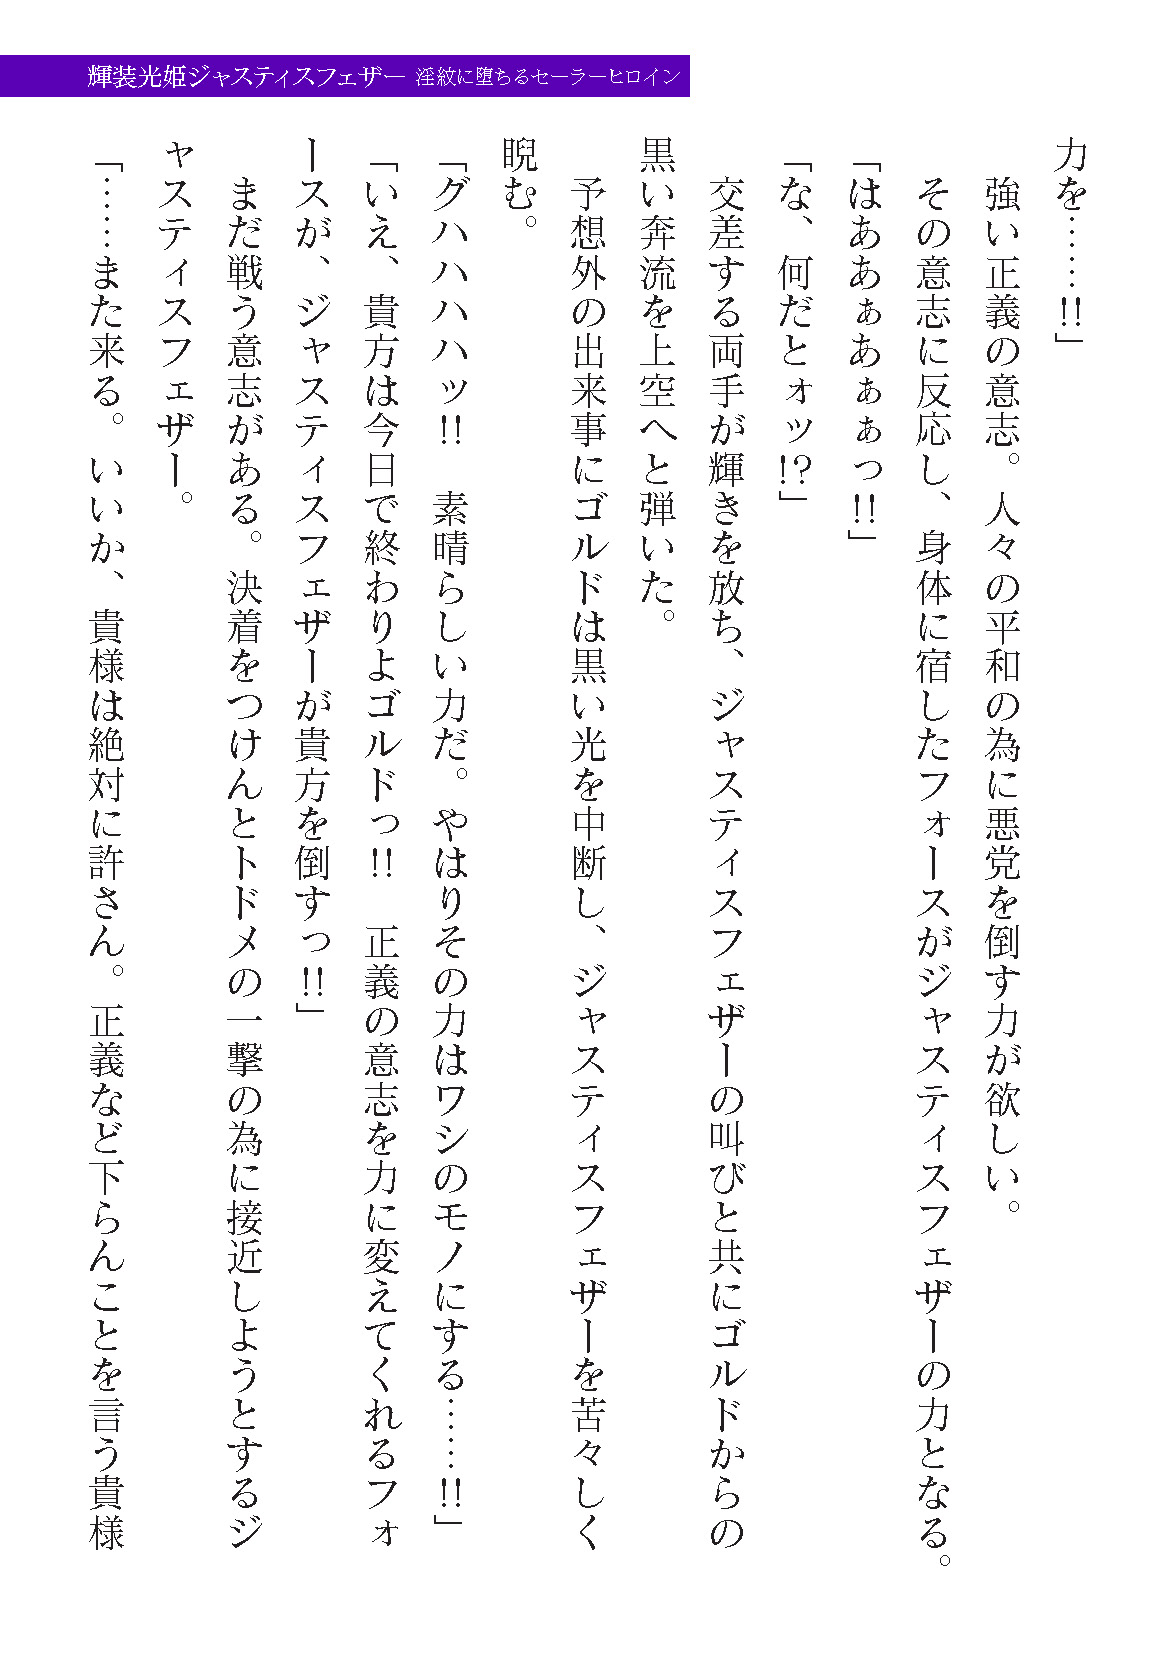 輝装光姫ジャスティスフェザー 淫紋に堕ちるセーラーヒロイン
力を……!!」
　強い正義の意志。人々の平和の為に悪党を倒す力が欲しい。
　その意志に反応し、身体に宿したフォースがジャスティスフェザーの力となる。
「はああぁあぁぁっ!!」
「な、何だとォッ!?」
　交差する両手が輝きを放ち、ジャスティスフェザーの叫びと共にゴルドからの
黒い奔流を上空へと弾いた。
　予想外の出来事にゴルドは黒い光を中断し、ジャスティスフェザーを苦々しく
睨む。
「グハハハハッ!!　素晴らしい力だ。やはりその力はワシのモノにする……!!」
「いえ、貴方は今日で終わりよゴルドっ!!　正義の意志を力に変えてくれるフォ
ースが、ジャスティスフェザーが貴方を倒すっ!!」
　まだ戦う意志がある。決着をつけんとトドメの一撃の為に接近しようとするジ
ャスティスフェザー。
「……また来る。いいか、貴様は絶対に許さん。正義など下らんことを言う貴様